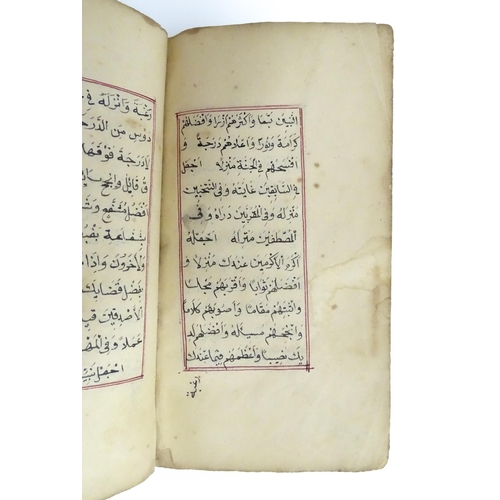 النبيين تبعا واكثرهم ازرا وافضلهم
كرامة ونورا واعلاهم درجة و
افسحهم في الجنة منزله اجعل
في السابقين غايته وفي المنتخبين
منزله وفي المقربين داره وفي
المصطفين منزله اجعله
اكرم الاكرمين عندك منزلا و
افضلهم ثوابا واقربهم مجلسا
واثبتهم مقاما واصوبهم كلاما
وانجحهم مسئلة وافضلهم لد
يك نصيبا واعظمهم فيما عندك
رغبة
رغبة وانزله في
دوس من الدرجـ
لدرجة فوقها
ق قائل وانجح سا
افضل مشفع وشـ
بشفاعة يغبـ
ولاخرون واذا
بفصل قضايك
الاصدقين قيـ
عملا وفي المهـ
اجعل نبيـ